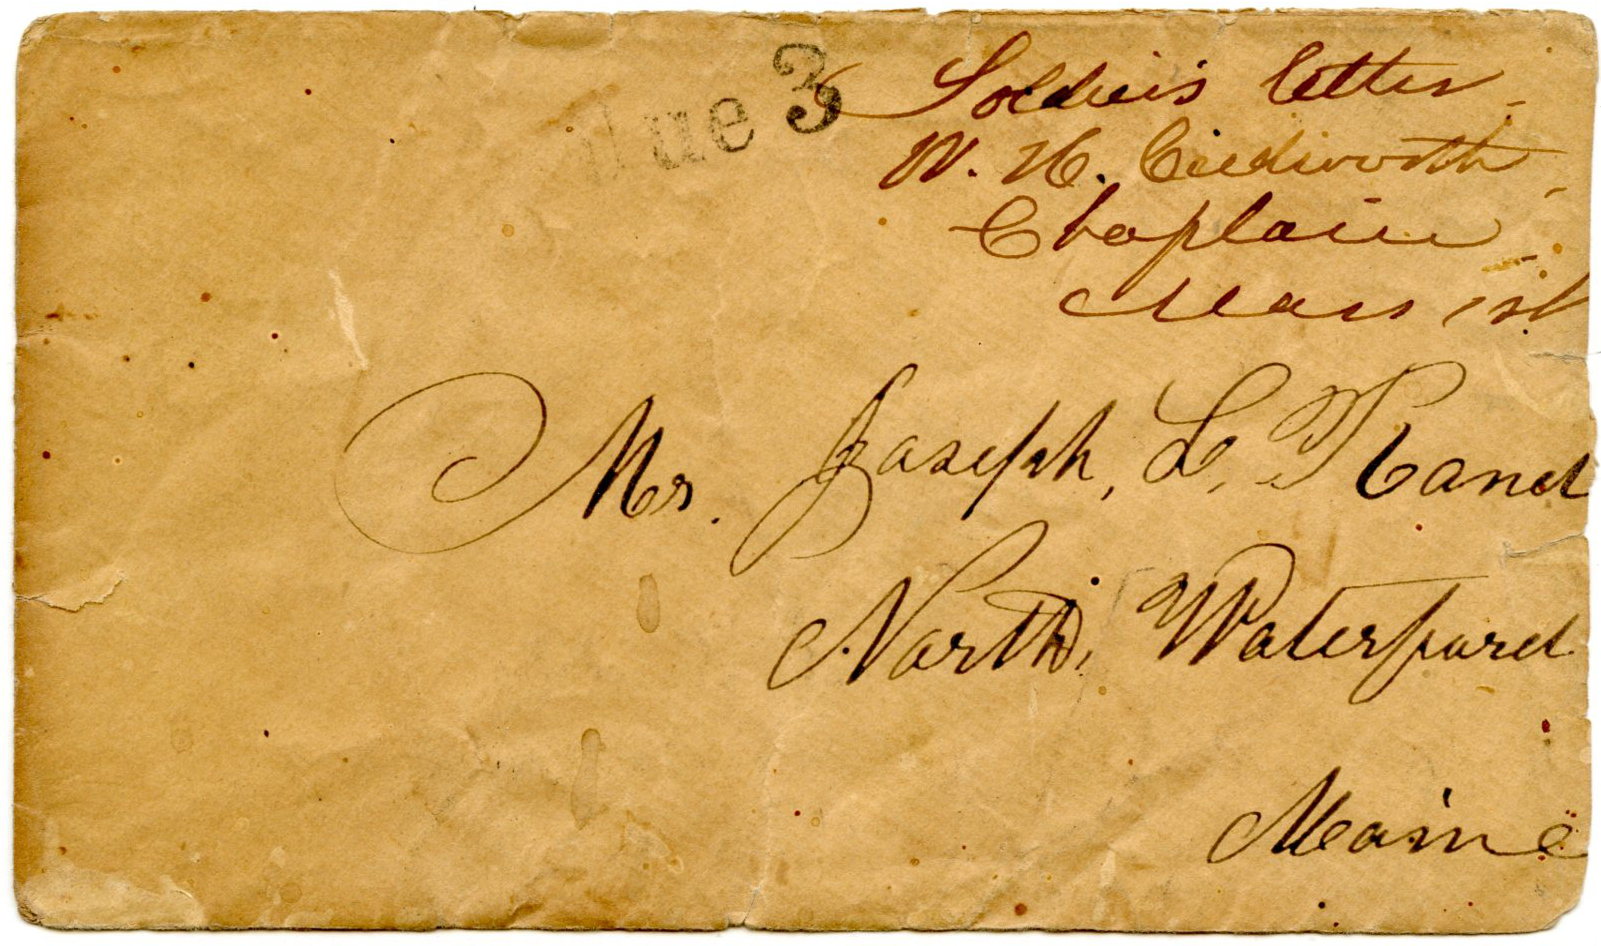 Due 3
Soldier's letter
W. H. Cudworth
Chaplain
Mass 1st
Mr. Joseph, L, Rand
North, Waterford
Maine